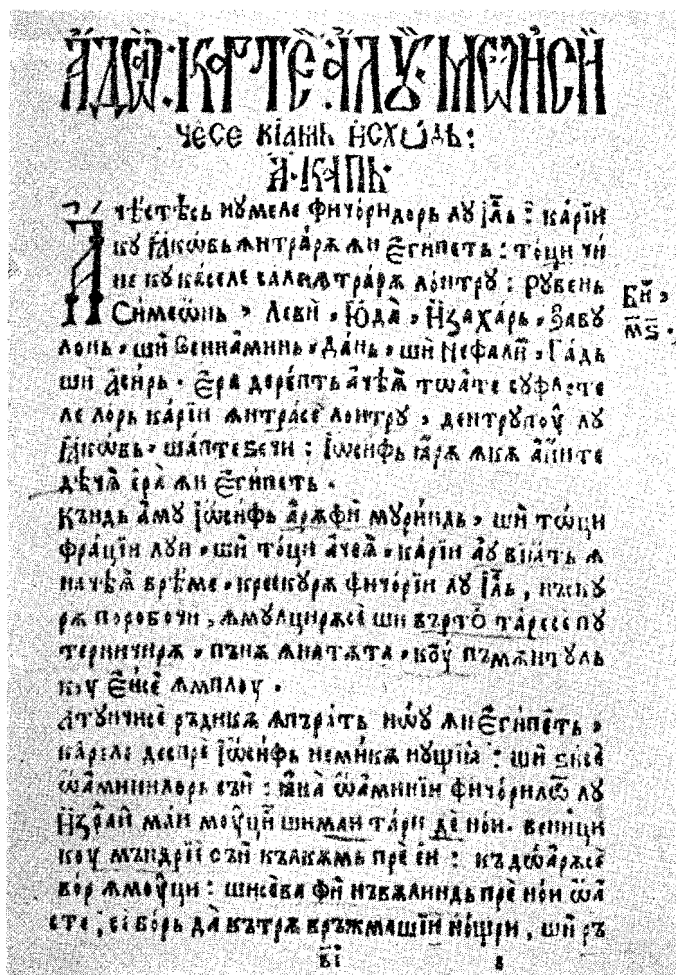 А҆ДѠ҆А: КАРТЕ: А҆ЛУ́Й: МѠѴ҆СИ
ЧЕСЕ КІАМЬ И҆СХѠДЬ:
А҃ КАПЬ
А҆чѣстѣсь нумеле фичѡрилѡрь лу І҆л҃ь: ка́рїи
ку Ꙗ҆кѡвь ꙟнтра́рꙗ ꙟн Є҆гїпеть: то́ци чи́
не ку ка́селе сале ꙟтра́рꙗ лонтру: Рꙋвень
Симеѡ́нь, Левѝ, Ю҆да̀, И҆заха́рь, Заву
лонь, шѝ Венїами́нь, Да́нь, шѝ Нефалѝ, Га́дь
ши А҆си́рь. Є҆ра дере́пть ачѣѧ тѡ́ате суфлете
ле лорь ка́рїи ꙟнтра́се лонтру, дентрупоу̀ лу
Ꙗ҆кѡвь, ша́птеѕечи: І҆ѡсифь ꙗ҆рѫ ꙟнкѫ а҆и́нте
дѣчѧ ера̀ ꙟн Є҆гїпеть.
Къндь аму І҆ѡсифь а҆рѫфѝ мури́ндь, шѝ то́ци
фра́цїи луи, шѝ то́ци ачеѧ, ка́рїи ау вїа́ть ꙟ
начѣѧ врѣме, крескурѫ фичо́рїи лу І҆л҃ь, нъску
рѫ поробочи, ꙟмулцирѫсѐ ши вързто̀ та́ресе пу
терничирѫ, пънѫ ꙟната́та, коу̀ пъмѫнтуль
коу Є҆исе ꙟмплоу.
А҆тунчисѐ ръдикѫ ꙟпъра́ть но́ѹ ꙟн Є҆гїпеть,
ка́реле деспрѐ І҆ѡсифь неми́кѫ нущїа̀: ши ѕисѐ
ѡ҆аминилорь съи: ꙗ҆кѫ ѡ҆аминїи фичо́рилѡ лу
И҆зра́ил ма́и моу́ци шима́и та́ри дѐ нои. вени́ци
коу мъндрїѐ съй кълкѫмь прѐ еи: къдѡ́арѫсѐ
вор ꙟмоу́ци: шисѐва фѝ нъвѫлиндь прѐ но́и ѡ҆а
сте, еи ворь да̀ кътрѫ врѫжма́шїи но́щри, ши ръ
Би҃,
м҃ѕ.
в҃і
в